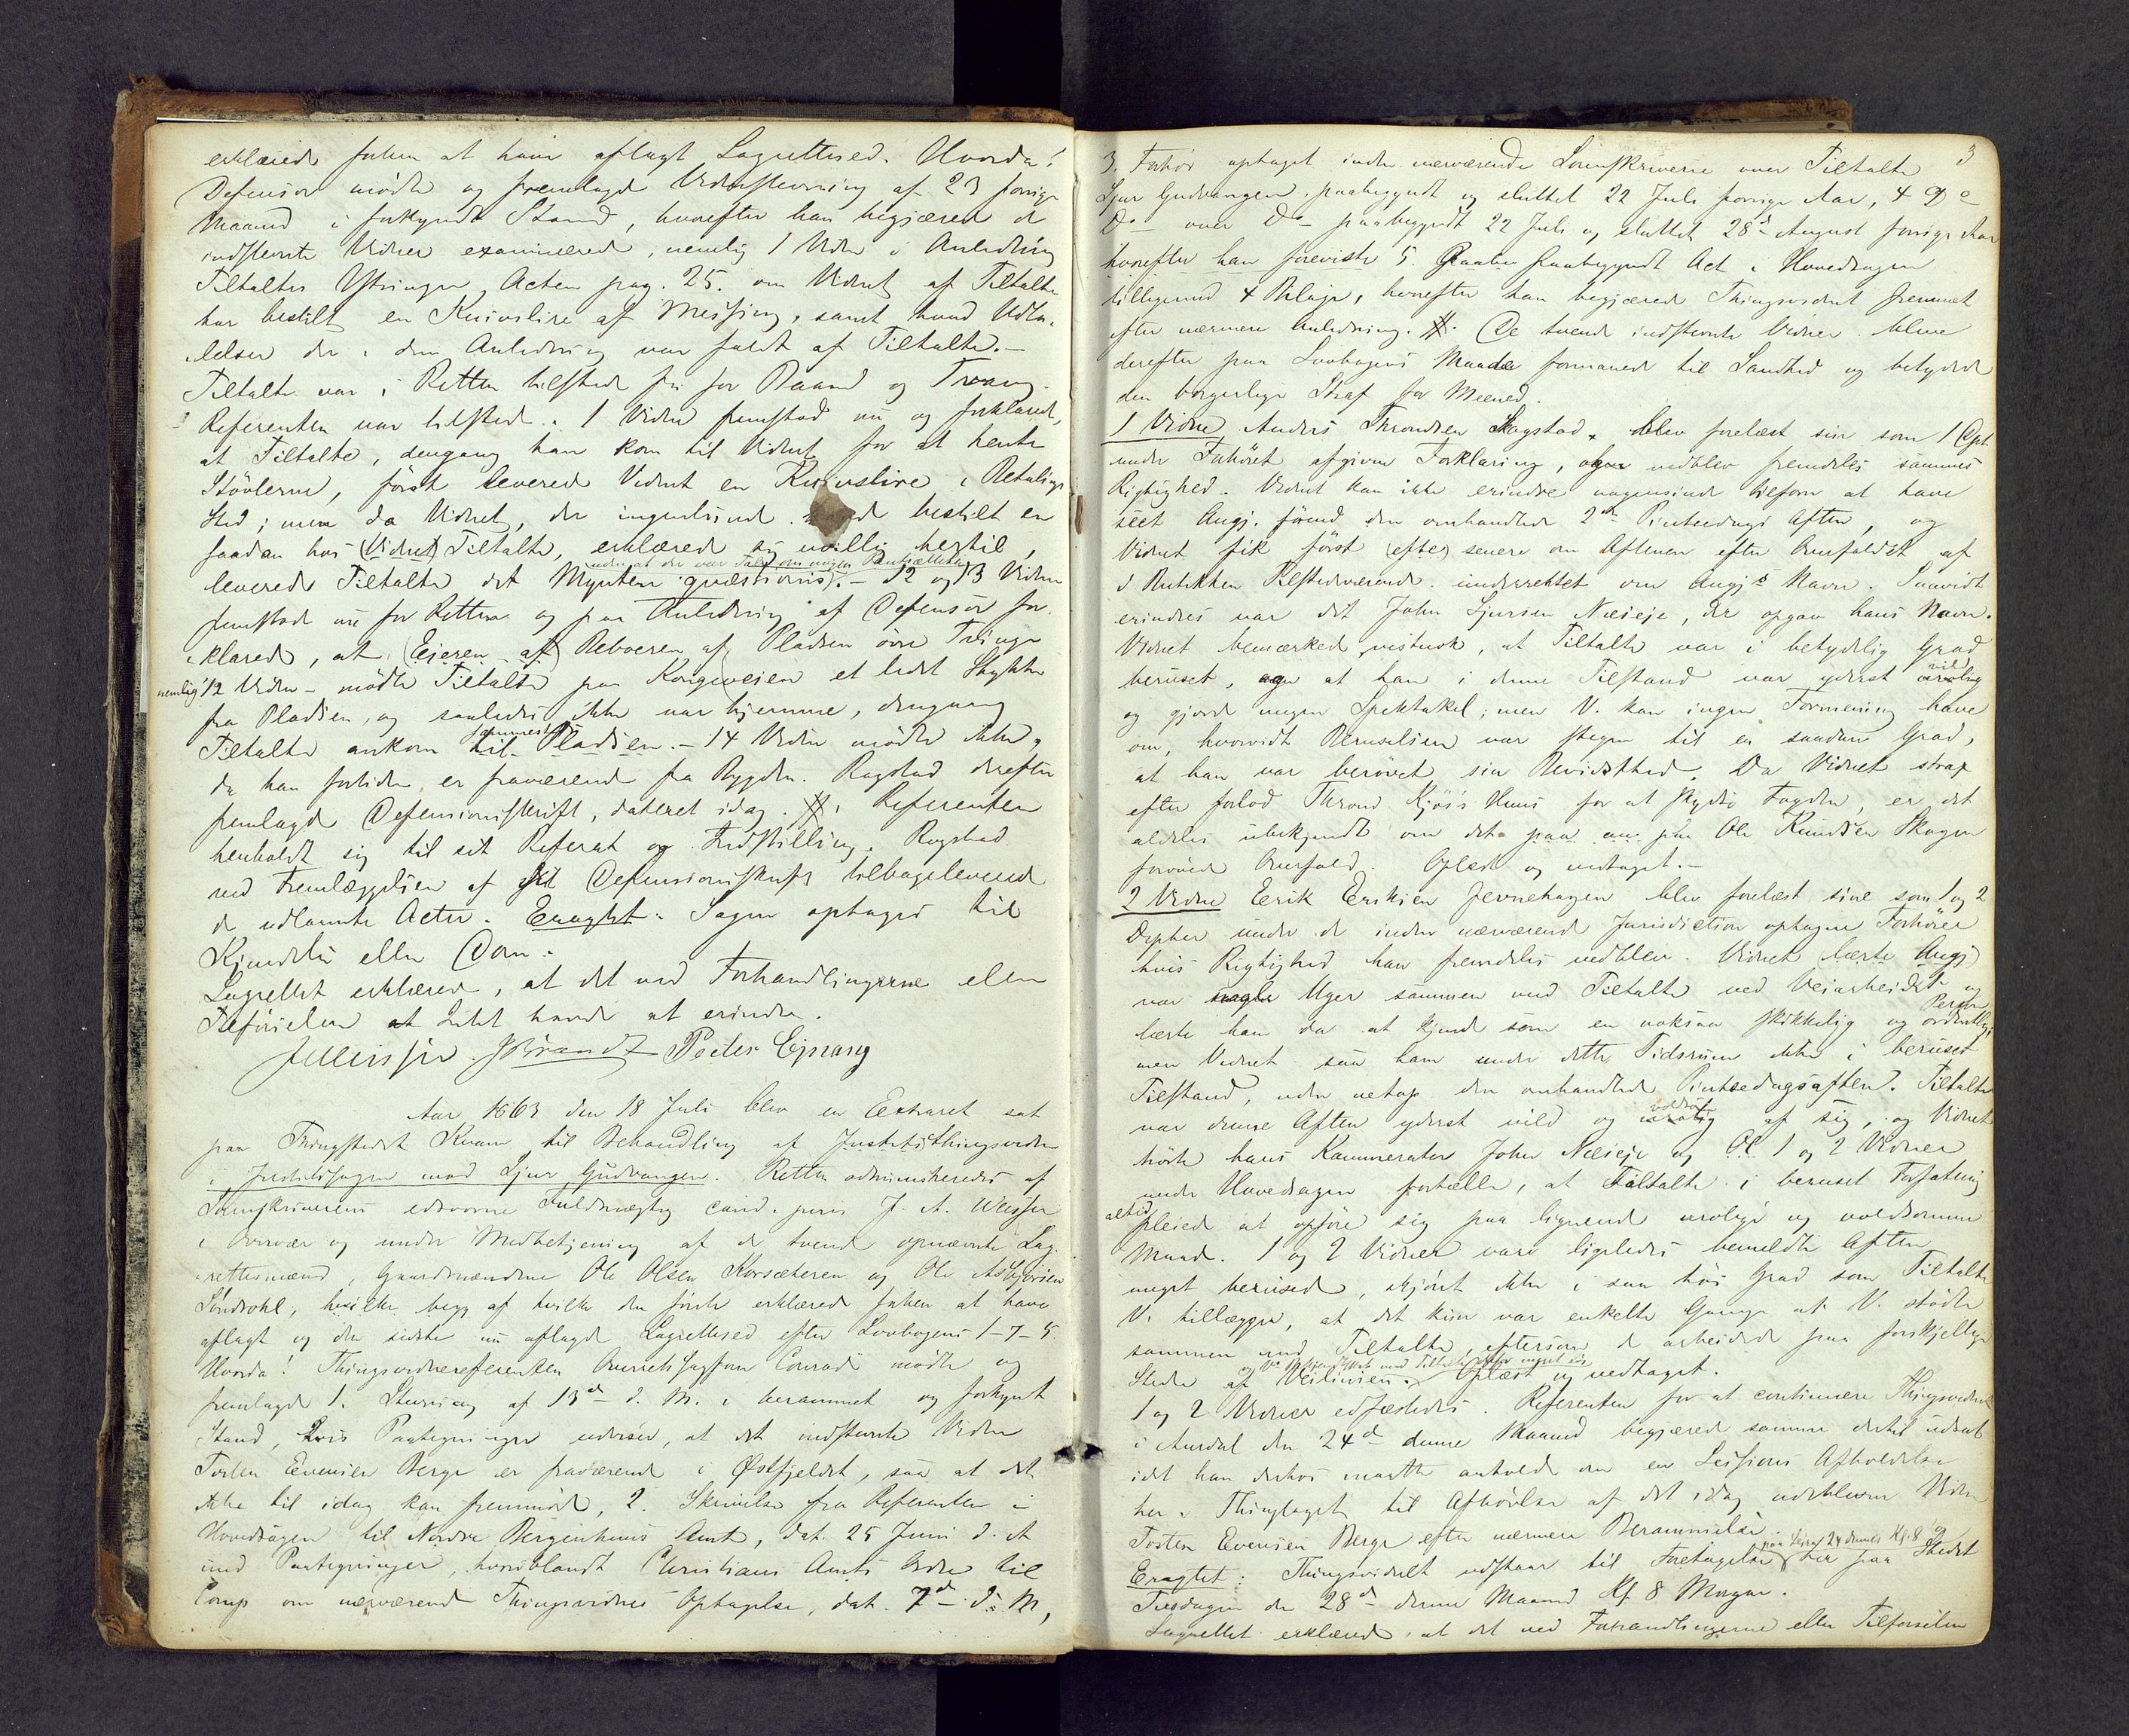 erklærede forhen at have aflagt Lagrettesed. Hvorda!
Defensor mødte og fremlagde Vidnestevning af 23 forrige
Maaned i forkyndt Stand, hvorefter han begjærede de
indstevnte Vidner examinerede, nemlig 1 Vidne i Anledning
Tiltaltes Ytringer Acten pag. 25. om Vidnet af Tiltalte
har bestilt en Knivslire af Messing, samt hvad Udta-
lelser der i den Anledning var faldt af Tiltalte.-
Tiltalte var i Retten tilstede fri for Baand og Tvang.
Referenten var tilstede. 1 Vidne fremstod nu og forklarede,
at Tiltalte, dengang han kom til Vidnet for at hente
Støvlerne, først leverede Vidnet en Knivslire i Betalings
Sted; men da Vidnet, der ingenlunde havde bestilt en
saadan hos (Vidnet) Tiltalte, erklærede sig uvillig hertil,
uden at der var Tale om nogen Pantsættelse
leverede Tiltalte det Mynten qvæstionis.- 12 og 13 Vidne
fremstod nu for Retten og paa Anledning af Defensor for-
klarede, at (Eieren af) Beboeren af Pladsen øvre Tringe
nemlig 12 Vidne - mødte Tiltalte paa Kongeveien et lidet Stykke
fra Pladsen, og saaledes ikke var hjemme, dengang
Tiltalte ankom til Pladsen.- 14 Vidne mødte ikke,
da han fortiden er fraværende fra Bygden. Rogstad derefter
fremlagde Defensionsskrift, dateret idag. #. Referenten
henholdt sig til sit Referat og Indstilling. Rogstad
ved Fremlæggelsen af sit Defensionsskrift tilbageleverede
de udlaante Acter. Eragtet: Sagen optages til
Kjendelse eller Dom.
Lagrettet erklærede, at det ved Forhandlingerne eller
Tilførselen Intet havde at erindre.
JAWeisser. JBrandt Peder Ejnang
Aar 1863 den 18 Juli blev en Extraret sat
paa Thingstedet Kvam til Behandling af Justitsthingsvidne
i Justitssagen mod Sjur Gudvangen. Retten administreredes af
Sorenskriverens edsvorne Fuldmægtig cand. juris J. A. Weisser
i Overvær og under Medbetjening af de tvende opnævnte Lag-
rettesmænd, Gaardmændene Ole Olsen Korsæteren og Ole Asbjørnsen
Søndrohl, hvilke begge af hvilke den første erklærede forhen at have
aflagt og den sidste nu aflagde Lagrettesed efter Lovbogens 1-7-5
Hvorda! Thingsvidnereferenten Overretssagfører Conradi mødte og
fremlagde 1. Stevning af 13de d. M. i berammet og forkyndt
Stand, hvis Paategninger udviser, at det indstevnte Vidne
Torsten Evensen Berge er fraværende i Østfjeldet, saa at det
ikke til idag kan fremmøde, 2. Skrivelse fra Referenten i
Hovedsagen til Nordre Bergenhuus Amt, dat. 25 Juni d. A
med Paategninger, hvoriblandt Christians Amts Ordre til
Comp om nærværende Thingsvidnes Optagelse, dat. 7de ds M,
3
3. Forhør optaget inden nærværende Sorenskriverie over Tiltalte
Sjur Gudvangen, paabegyndt og sluttet 22 Juli forrige Aar, 4 Do
Do over Do paabegyndt 22 Juli og sluttet 28de August forrige Aar
hvorefter han foreviste 5. paabegyndt Act i Hovedsagen
tilligemed 4 Bilage, hvorefter han begjærede Thingsvidnet fremmet
efter nærmere Anledning. #. De tvende indstevnte Vidner bleve
derefter paa Lovbogens Maade formanede til Sandhed og betydede
den borgerlige Straf for Meened.
1 Vidne Anders Throndsen Skagstad, blev forelæst sin som 1 Dpt
under Forhøret afgivne Forklaring, og vedblev fremdeles sammes
Rigtighed. Vidnet kan ikke erindre nogensinde tilforn at have
seet Angj. førend den omhandlede 2den Pintsedags Aften, og
Vidnet fik først (efter) senere om Aftenen efter Overfaldet af
i Butikken Tilstedeværende underrettet om Angjs Navn Saavidt
erindres var det John Sjursen Næseje, der opgav hans Navn.
Vidnet bemærkede vistnok, at Tiltalte var i betydelig Grad
beruset, og at han i denne Tilstand var yderst vild
og gjorde megen Spektakel; men V. kan ingen Formening have
om, hvorvidt Beruselsen var stegen til en saadan Grad,
at han var berøvet sin Bevidsthed. Da Vidnet strax
efter forlod Thrond Kjøs's Huus for at skydse Fogden, er det
aldeles ubekjendt om det paa Ole Knudsen Skogen
forøvede Overfald. Oplæst og vedtaget.-
2 Vidne Erik Eriksen Jevnehagen blev forelæst sine som 1 og 2
Depter under de inden nærværende Jurisdiction optagne Forhører
hvis Rigtighed han fremdeles vedblev. Vidnet (lærte Angj)
var nogle Uger sammen med Tiltalte ved Veiarbeidet og
lærte ham da at kjende som en noksaa skikkelig og ordentlig Person
men Vidnet saa ham under dette Tidsrum ikke i beruset
Tilstand, uden netop den omhandlede Pintsedagsaften. Tiltalte
var denne Aften yderst vild og voldsom af sig, og Vidnet
hørte hans Kammerater John Næseje og 1 og 2 Vidner
under Hovedsagen fortælle, at Tiltalte i beruset Forfatning
altid pleiede at opføre sig paa lignende urolige og voldsomme
Maade. 1 og 2 Vidner vare ligeledes bemeldte Aften
meget berusede, skjønt ikke i saa høi Grad som Tiltalte
V. tillægger, at det kun var enkelte Gange at V. stødte
sammen med Tiltalte, eftersom de arbeidede paa forskjellige
Steder af Veilinien. Oplæst og vedtaget.
1 og 2 Vidner edfæstedes. Referenten for at continuere Thingsvidnet
i Aurdal den 24de denne Maaned begjærede samme dertil udsat
idet han derhos maatte anholde om en Sessions Afholdelse
her i Thinglaget til Afhørelse af det idag udeblevne Vidne
Torsten Evensen Berge efter nærmere Berammelse.
Eragtet: Thingsvidnet udstaar til Foretagelse her paa Stedet
Tirsdagen den 28de denne Maaned Kl. 8 Morgen.
Lagrettet erklærede, at det ved Forhandlingerne eller Tilførselen